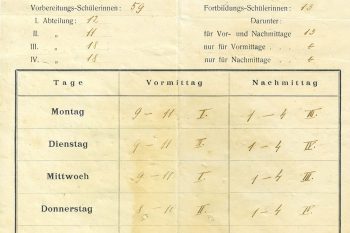 Vorbereitungs-Schülerinnen: 59 Fortbildungs-Schülerinnen: 13
I. Abteilung: 12 Darunter:
II. „ 11 für Vor- und Nachmittage 13
III. „ 18 nur für Vormittage
IV. „ 18 nur für Nachmittage
Tage Vormittag Nachmittag
Montag 9 – 11 I. 1 – 4 III.
Dienstag 9 – 11 II. 1 – 4 IV.
Mittwoch 9 – 11 I. 1 – 4 III.
Donnerstag 8 – 11 II. 1 – 4 IV.